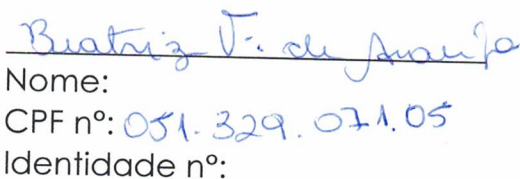 Beatriz V. de Araujo
Nome:
CPF nº: 051.329.071.05
Identidade nº: